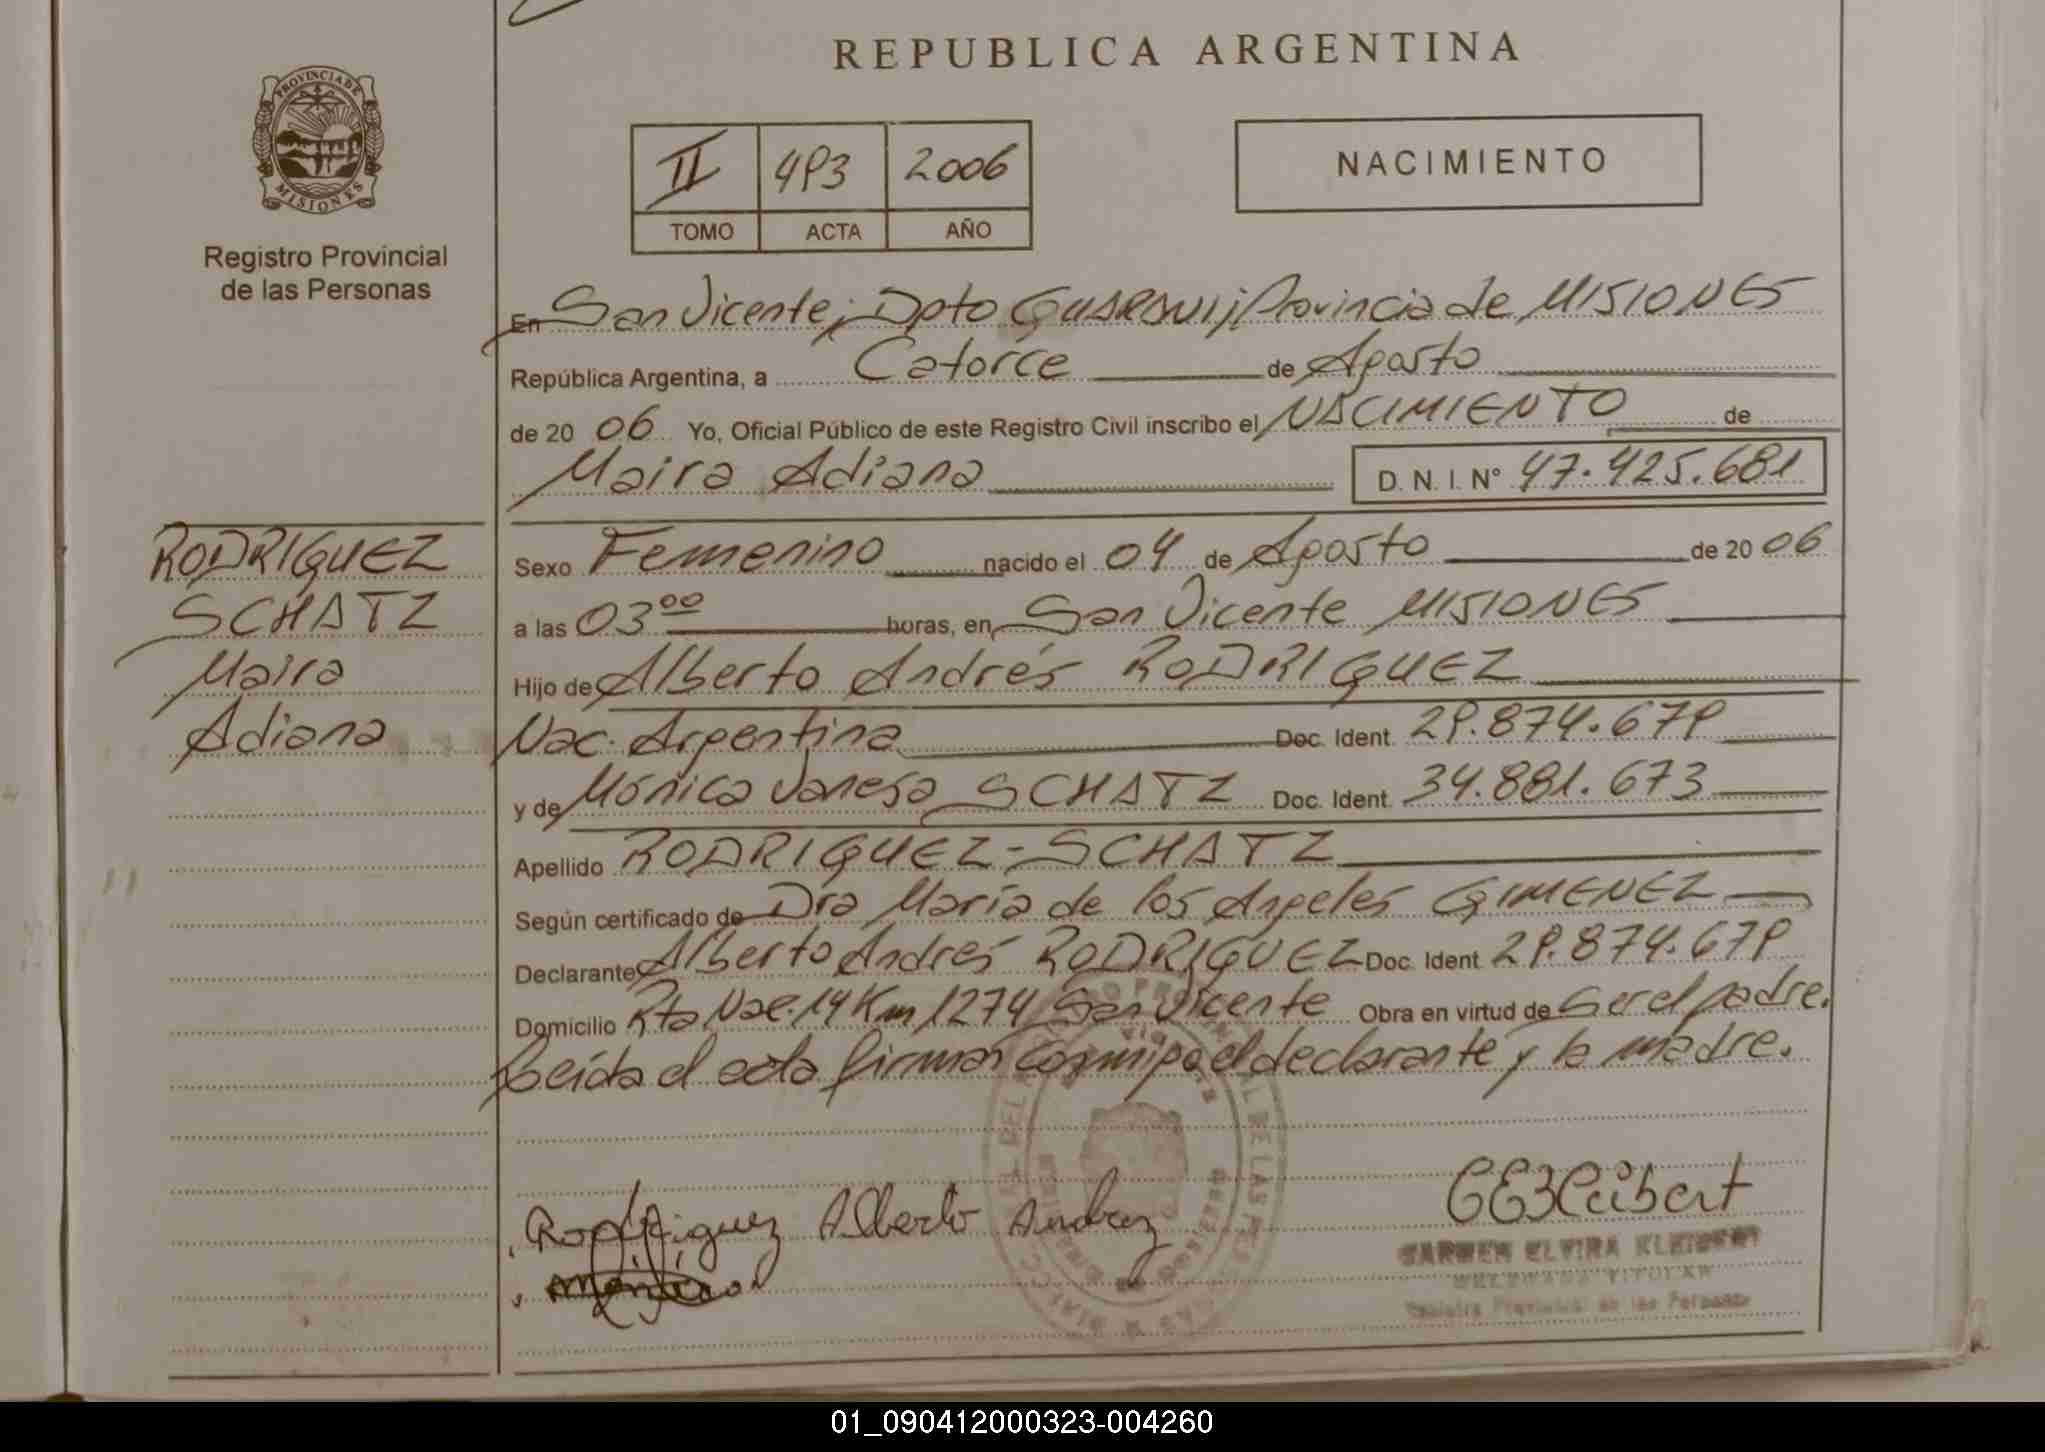 REPUBLICA ARGENTINA
PROVINCIA DE
MISIONES
Registro Provincial
de las Personas
II 493 2006
TOMO ACTA AÑO
NACIMIENTO
En San Vicente; Dpto GUARANI; Provincia de MISIONES
República Argentina, a Catorce de Agosto
de 20 06 Yo, Oficial Público de este Registro Civil inscribo el NACIMIENTO de
Maira Adiana D. N. I. N° 47.425.681
RODRIGUEZ
SCHATZ
Maira
Adiana
Sexo Femenino nacido el 04 de Agosto de 20 06
a las 03 00 horas, en San Vicente MISIONES
Hijo de Alberto Andrés RODRIGUEZ
Nac. Argentina Doc. Ident. 29.874.679
y de Mónica Vanesa SCHATZ Doc. Ident. 34.881.673
Apellido RODRIGUEZ-SCHATZ
Según certificado de Dra María de los Angeles GIMENEZ
Declarante Alberto Andrés RODRIGUEZ Doc. Ident. 29.874.679
Domicilio Rta Nac. 14 Km 1274 San Vicente Obra en virtud de Ser el padre.
Leída el acta firman conmigo el declarante y la madre.
Rodriguez Alberto Andrez
CEKleibert
CARMEN ELVIRA KLEIBERT
DELEGADA TITULAR
Registro Provincial de las Personas
01_090412000323-004260